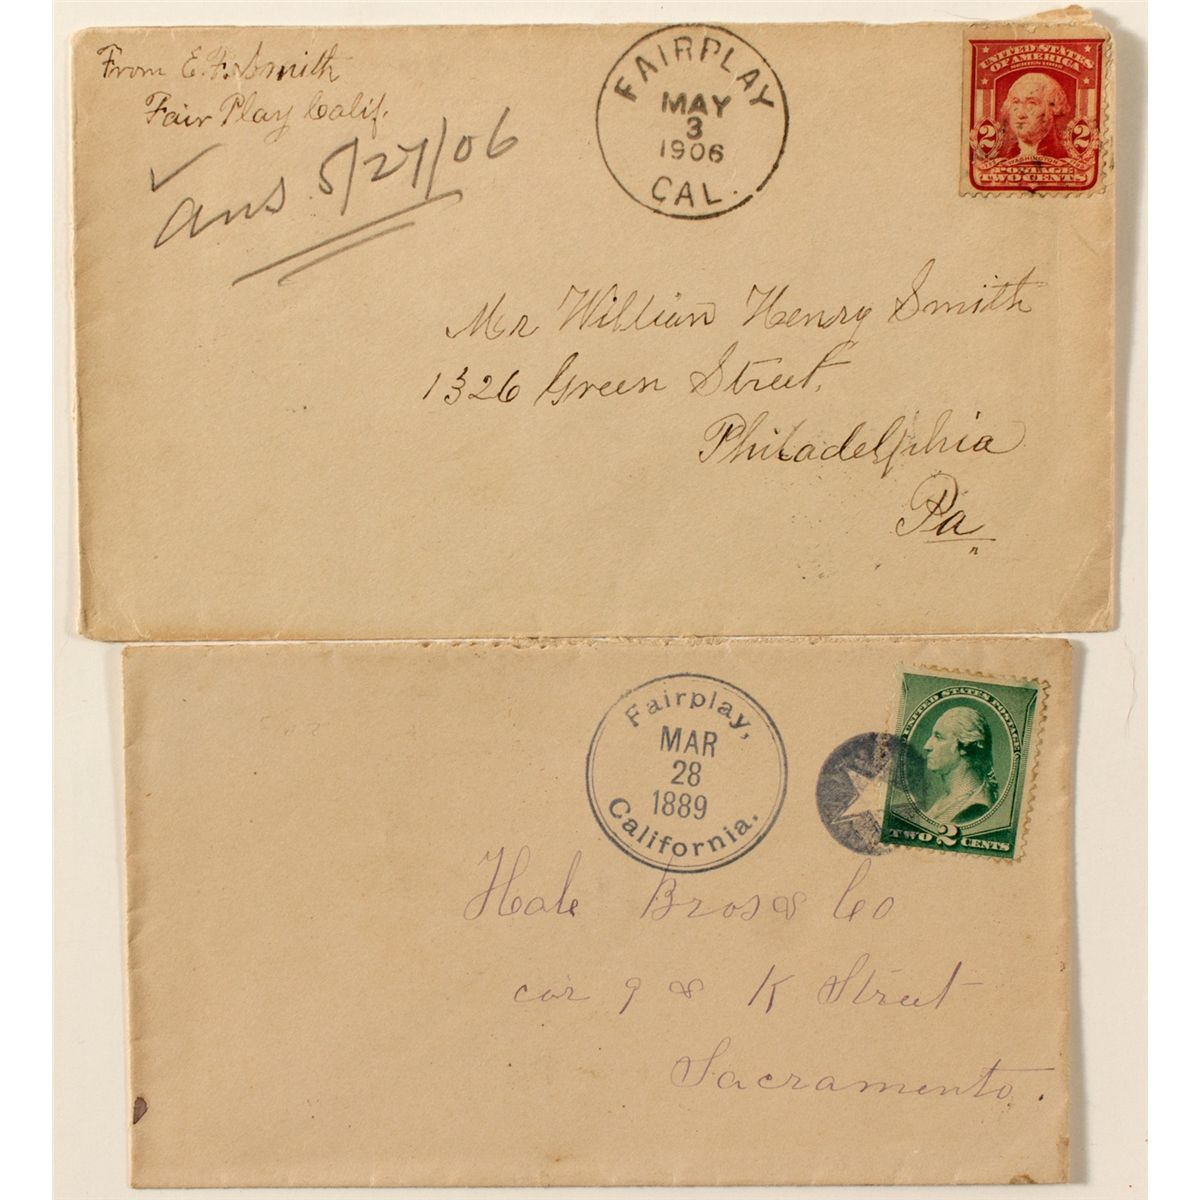 From E. F. Smith
Fair Play Calif.
ans. 5/27/06
FAIRPLAY
MAY
3
1906
CAL.
UNITED STATES
OF AMERICA
SERIES 1902
2 2
WASHINGTON
POSTAGE
TWO CENTS
Mr William Henry Smith
1326 Green Street,
Philadelphia
Pa
Fairplay,
MAR
28
1889
California.
UNITED STATES POSTAGE
TWO 2 CENTS
Hale Bros & Co
cor 9 & K Street
Sacramento.